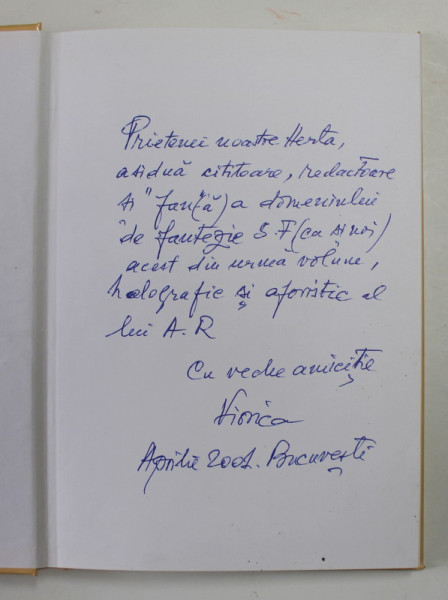 Prietenei noastre Herta,
asiduă cititoare, redactoare
și "fan(ă) a domeniului
de fantezie S.F (ca și noi)
acest din urmă volum,
holografic și aforistic al
lui A.R
Cu veche amiciție
Viorica
Aprilie 2001. București